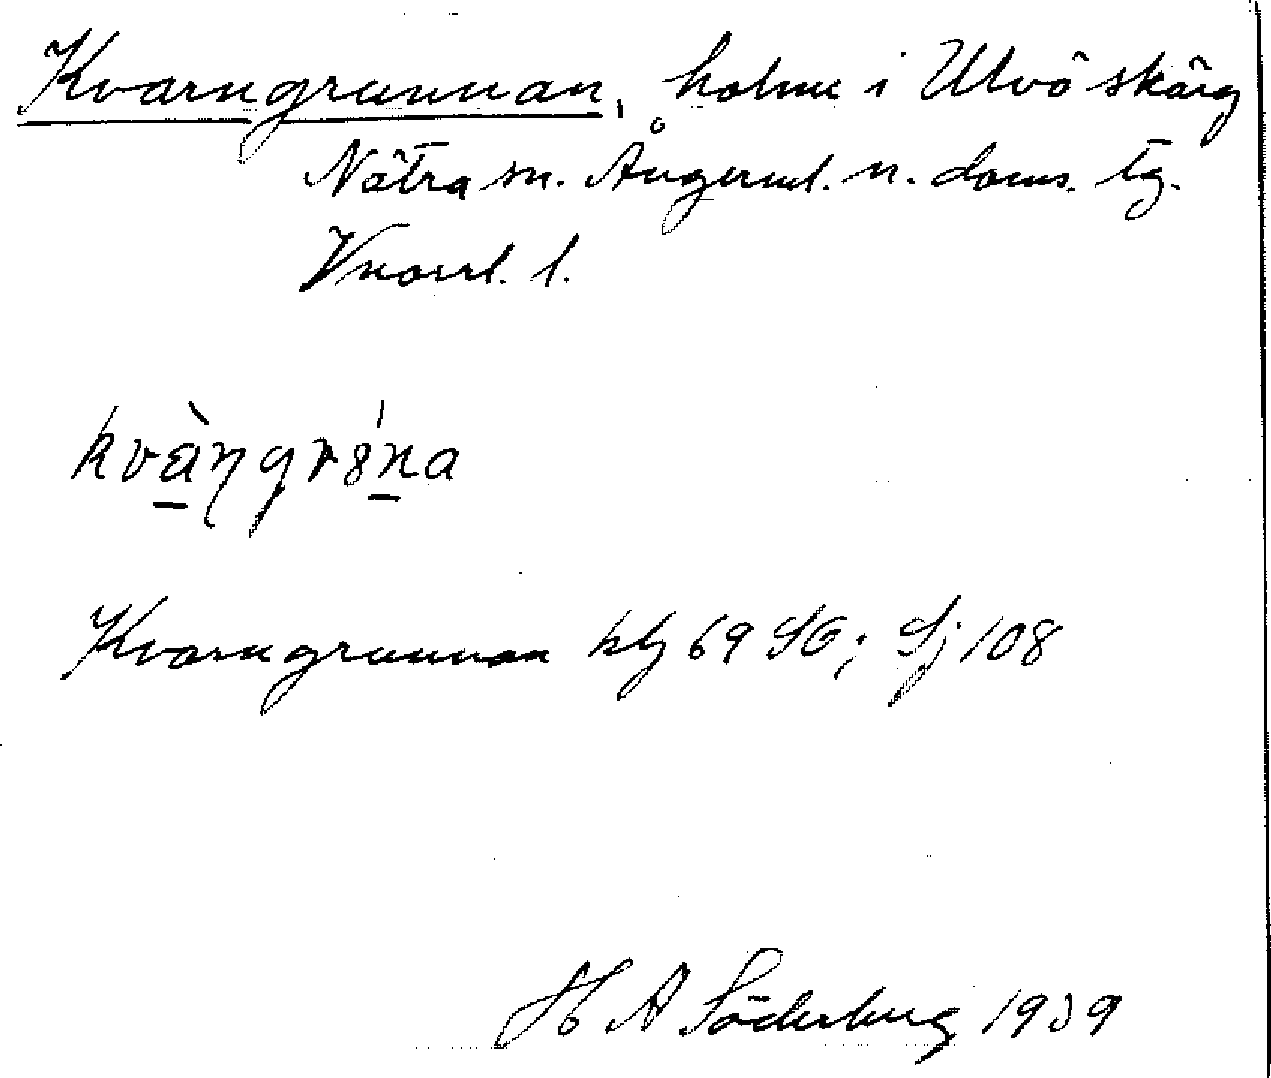 Kvarngrunnan, holme i Ulvö skärg
Nätra sn. Ångerml. n. doms. tg.
Vnorrl. l.
kvàngrȣ́na
Kvarngrunnan kbl 69 SO; Sj 108
H A Söderberg 1939